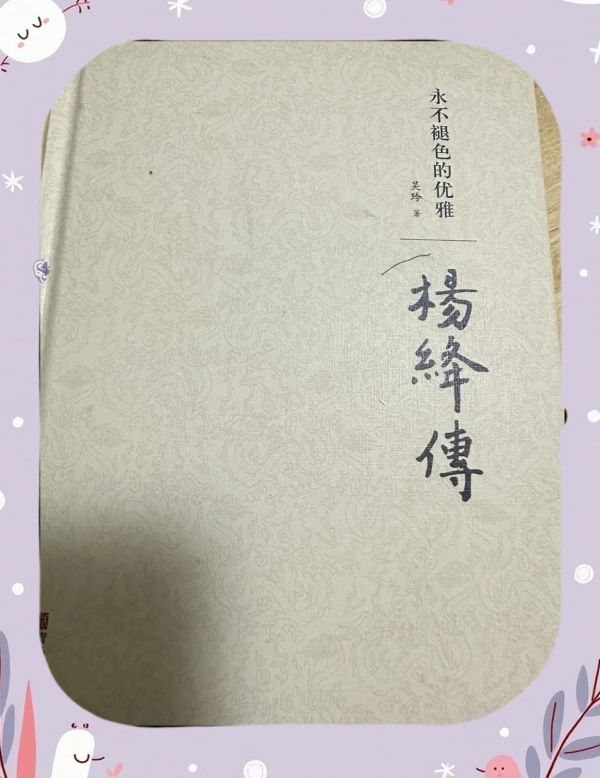 永不褪色的优雅
吴玲 著
楊絳傳